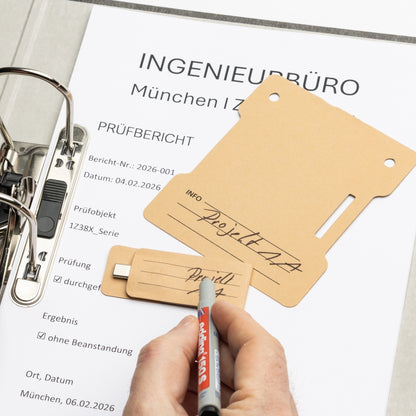 INGENIEURBÜRO
München | Z
PRÜFBERICHT
Bericht-Nr.: 2026-001
Datum: 04.02.2026
Prüfobjekt
1Z38X_Serie
Prüfung
☑ durchgef
Ergebnis
☑ ohne Beanstandung
Ort, Datum
München, 06.02.2026
INFO
Projekt 1A
Projekt
1A
edding